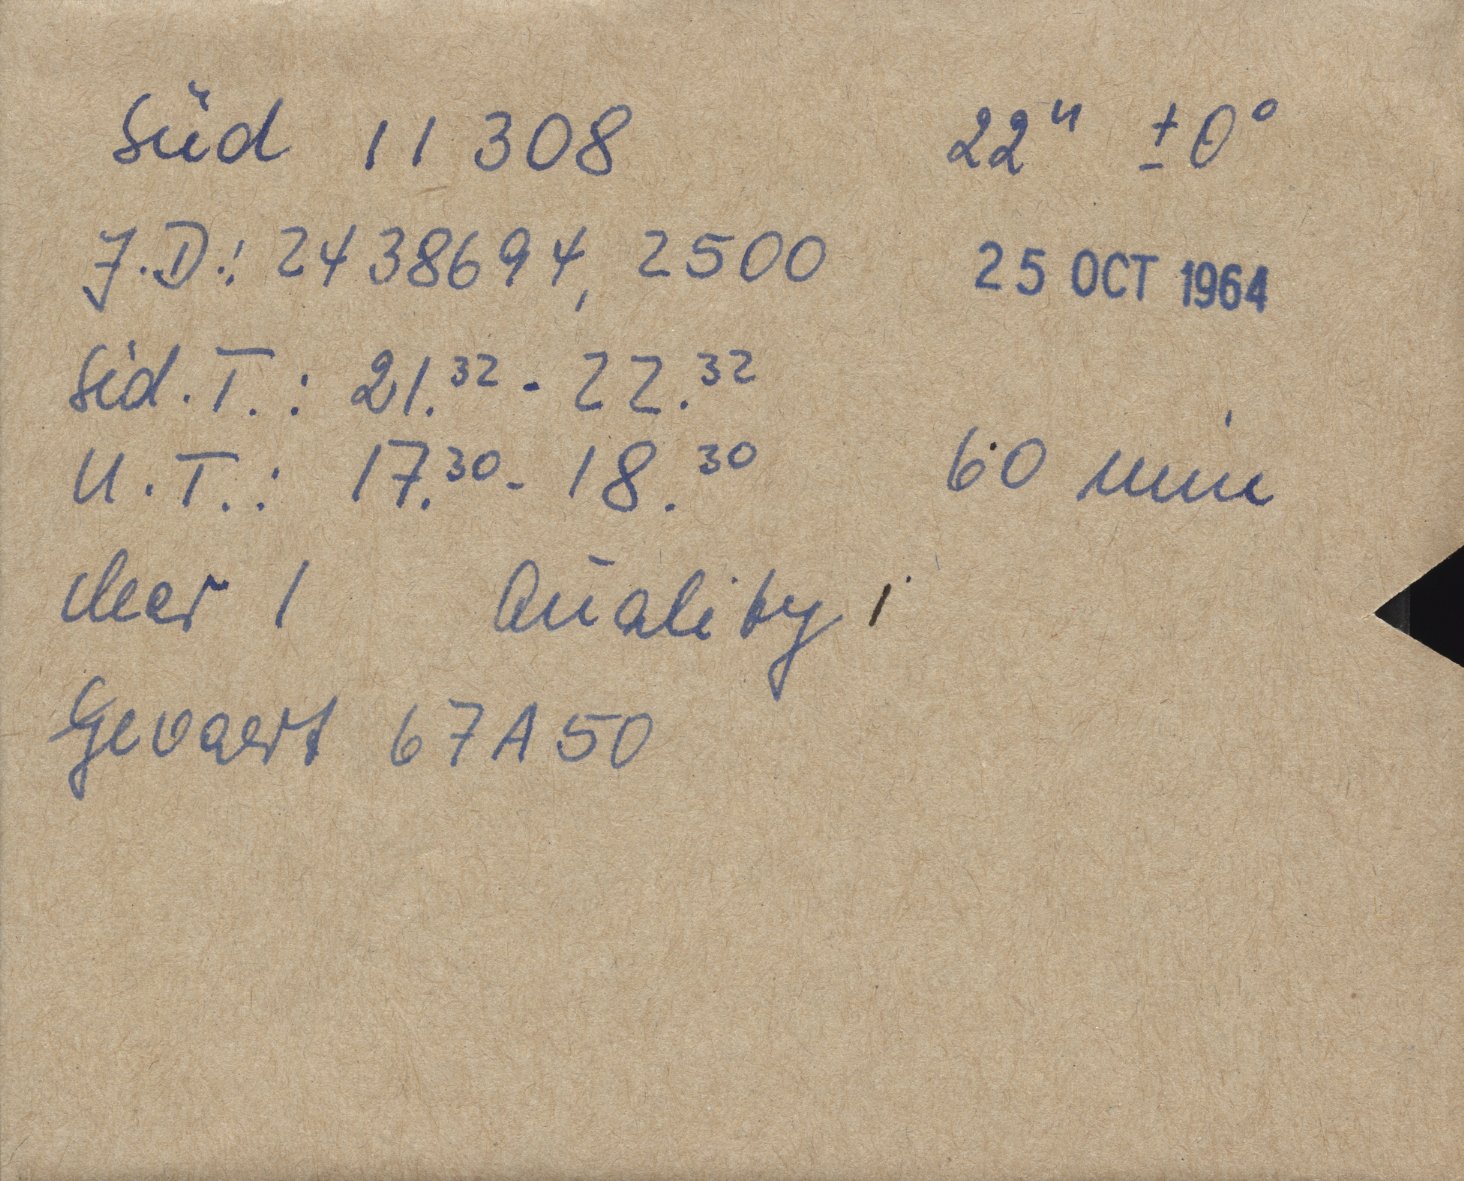 Süd 11 308 22ʰ ±0°
J.D.: 2438694, 2500 25 OCT 1964
Sid.T.: 21.³² - 22.³²
U.T.: 17.³⁰ - 18.³⁰ 60 min
clear 1 Quality 1
Gevaert 67A50